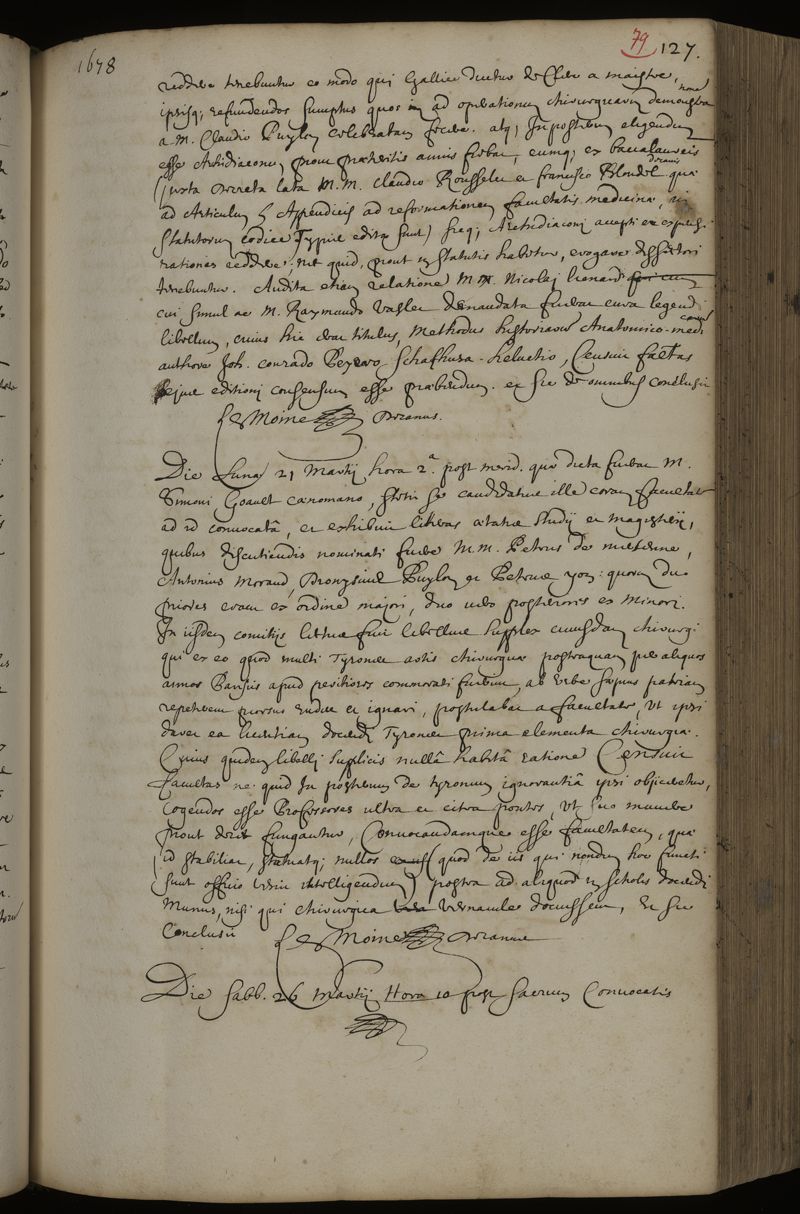 1678
79 127.
reddere tenebuntur eo modo qui Gallice dicitur de Clerc a maistre,
ipsisq; refundendos sumptus quos in ad operationum chirurgicarum demonstra
tiones
a M. Claudio Puylon celebratam fecere. atq; In posterum eligendum
esse Archidiaconum prout præteritis annis fiebat, eumq; ex baccalaureis
(juxta decreta lata M.M. Claudio Rousselet et francisco Blondel quæ
decanis
ad Articulum 5 Appendicis ad reformationem facultatis medicinæ, in
statutorum codice Typis edita sunt) sicq; Archidiaconi accepti et expensi
rationes reddere; nec quid, prout in statutis habetur, erogare dissectori
tenebuntur. Audita etiam relatione M. Nicolai Lienard
cui simul ac M. Raymundo Vaslet demandata fuerat cura legendi
libellum, cuius hic erat titulus, Methodus historiarum Anatomico-medi
carum
authore Joh. conrado Peyero Schafhusa-helvetio, Censuit facultas
ejus editioni consensum esse præbendum. et sic de omnibus conclusit
Le Moine Decanus.
Die Lunæ 21 Martij hora 2.a post merid. quæ dicta fuerat M.
Simoni Goault cænomano, stetit se candidatus ille coram facultate
ad id convocatâ, et exhibuit litteras ætatis studij et magisterij,
quibus discutiendis nominati fuere M.M. Petrus de
Antonius Morand, Dionysius Puylon et Petrus yon: quorum duo
priores erant ex ordine majori, duo vero posteriores ex minori.
In iisdem comitijs lectus fuit libellus supplex cuiusdam chirurgi
qui ex eo quod multi Tyrones artis chirurgicæ postquam per aliquos
annos Parisiis apud peritiores commorati fuerint, ab urbe sæpius patriam
repeterent prorsus rudes et ignari, postulabat a facultate, ut ipsi
daret ea licentiam docendi Tyrones prima elementa chirurgiæ.
Cujus quidem libelli supplicis nullâ habitâ ratione Censuit
facultas ne quid In posterum de tyronum ignorantiâ ipsi objiceretur,
cogendos esse Professores ultra et citra pontes, ut suo munere
prout decet fungantur, Convocandamque esse facultatem, quæ
id stabiliat, statuatq; nullos (quod de iis qui nondum hoc functi
sunt officio velim intelligendum) postea ad aliquod in scholis docendi
Munus, nisi qui chirurgica vernacule docuissent, Et sic
Conclusit Le Moine Decanus
Die sabb. 26 Martij Hora 10 post sacrum Convocatis